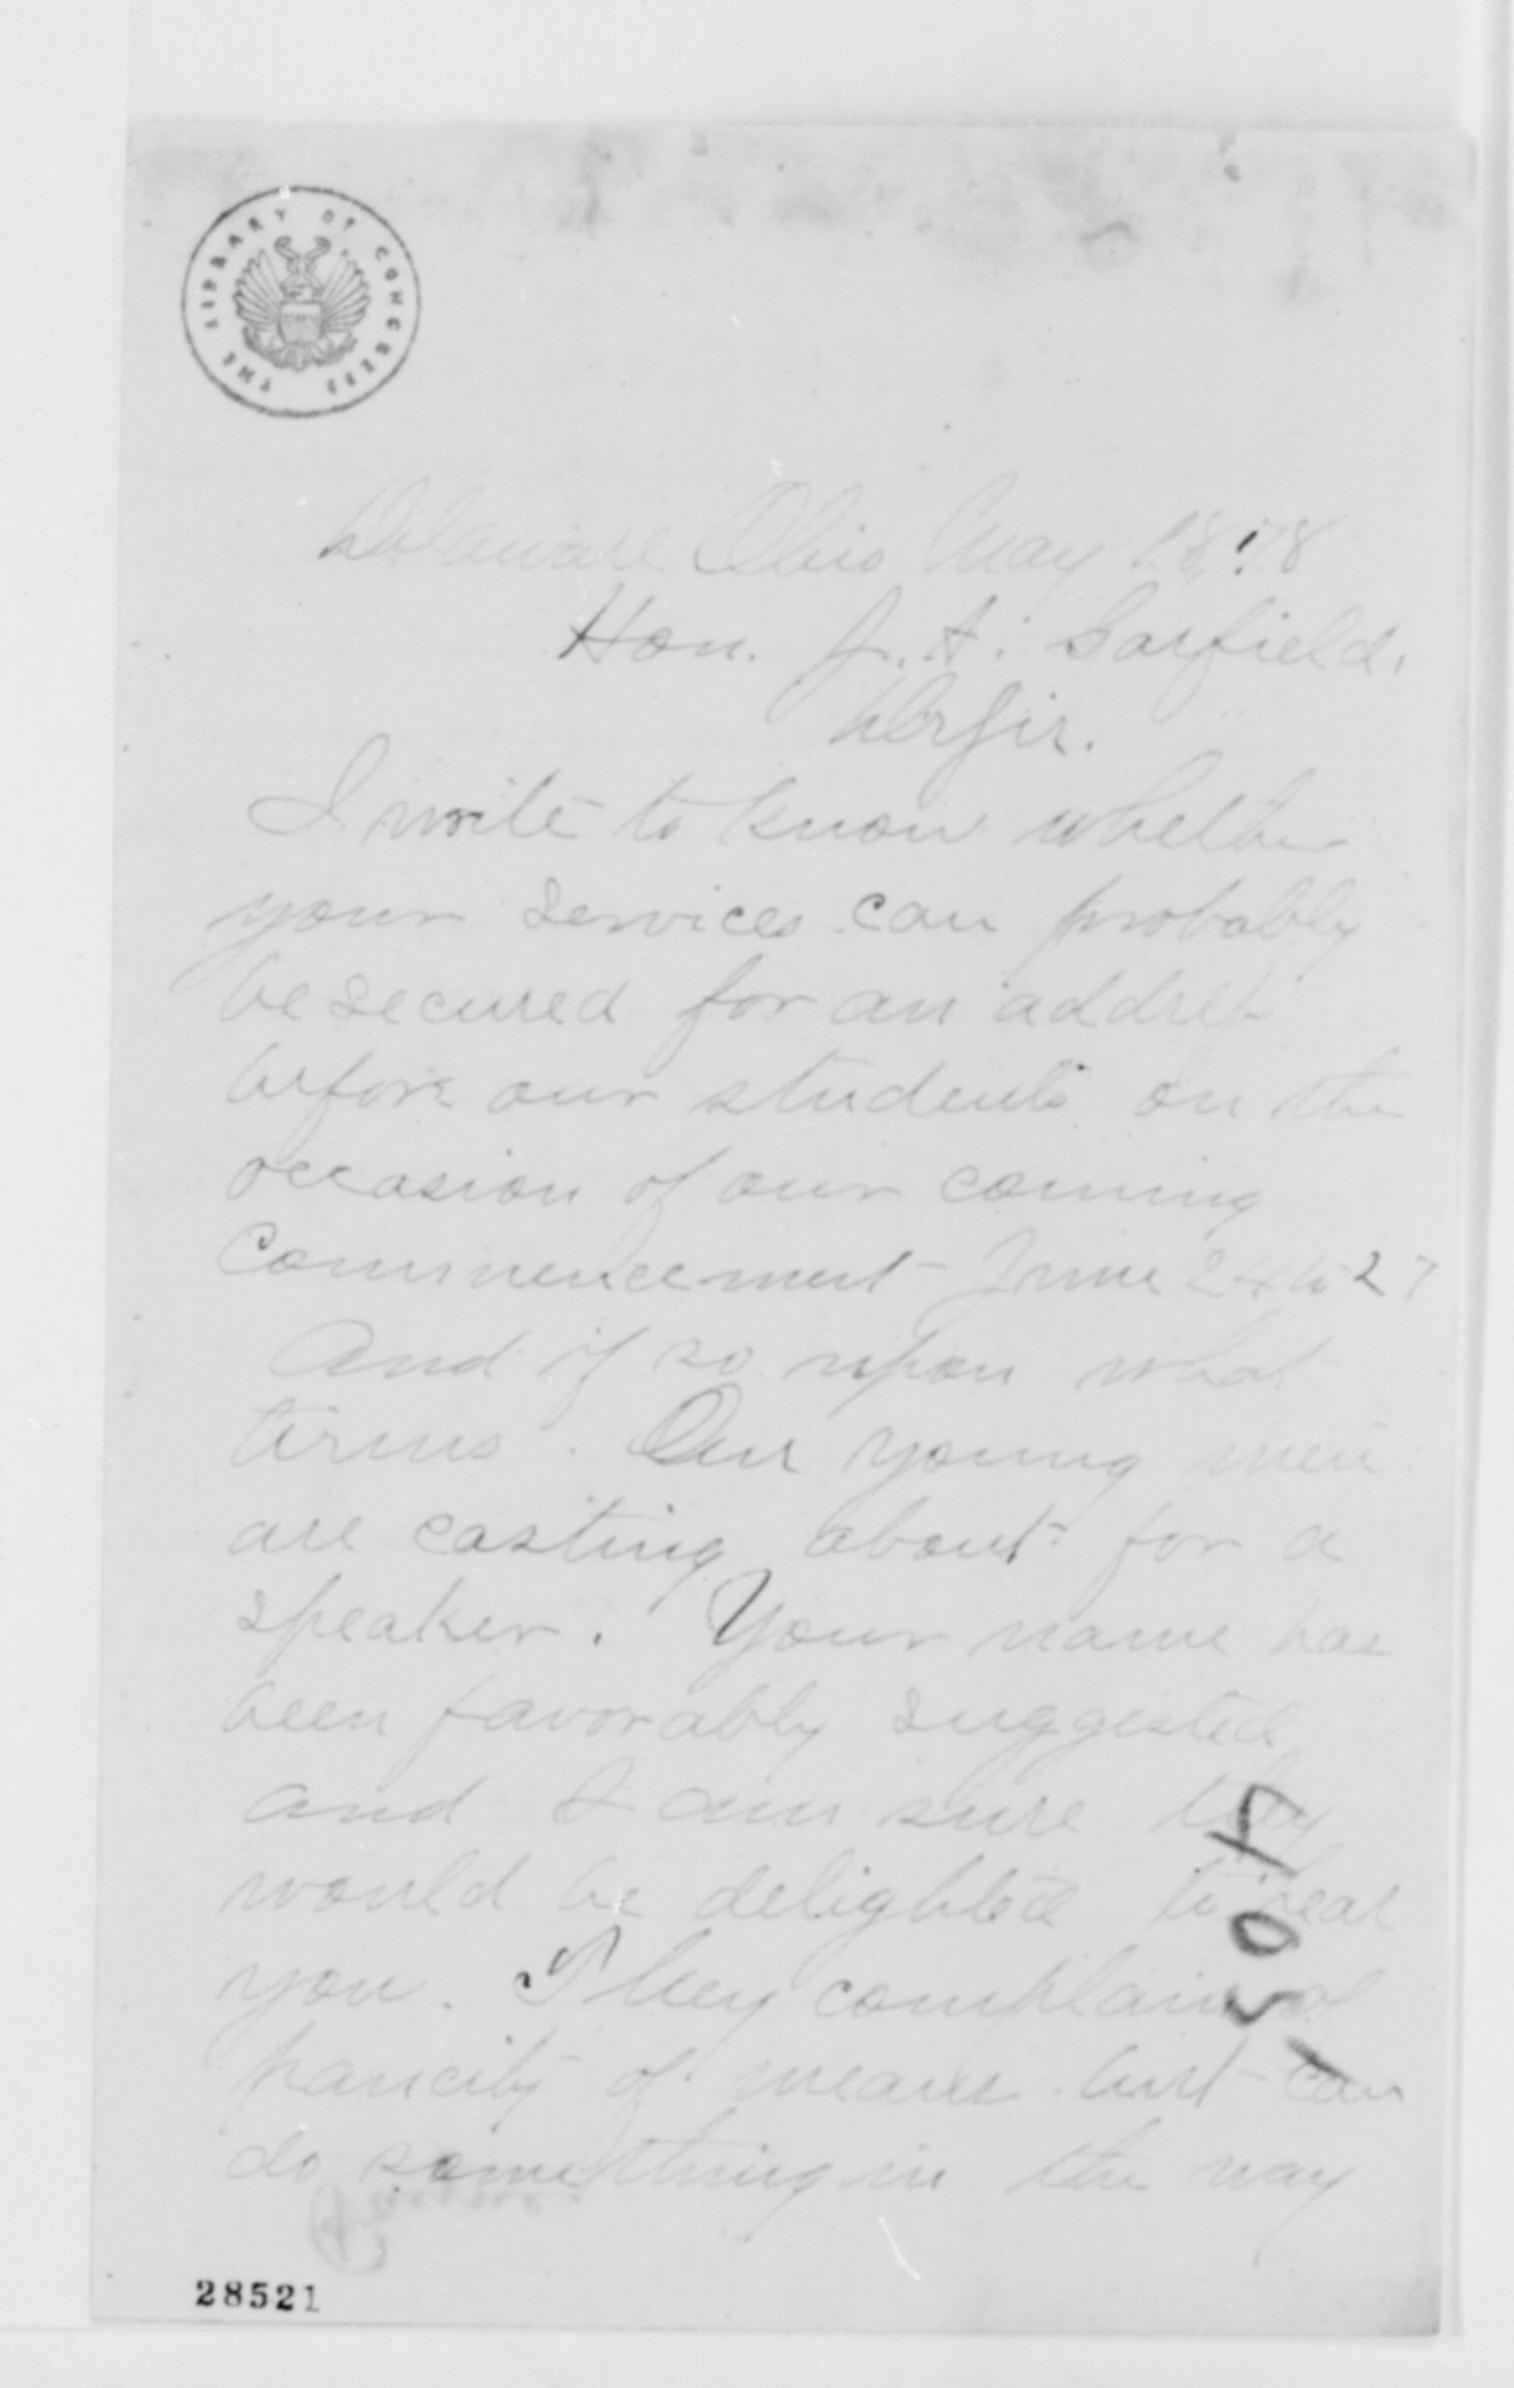 THE LIBRARY OF CONGRESS
Delaware Ohio May 18, '78
Hon. J. A. Garfield,
Dr Sir.
I write to know whether
your services can probably
be secured for an address
before our students on the
occasion of our coming
Commencement June 24 to 27
And if so upon what
terms. Our young men
are casting about for a
speaker. Your name has
been favorably suggested
and I am sure they
would be delighted to hear
you. They complain of
paucity of means but can
do something in the way
28521